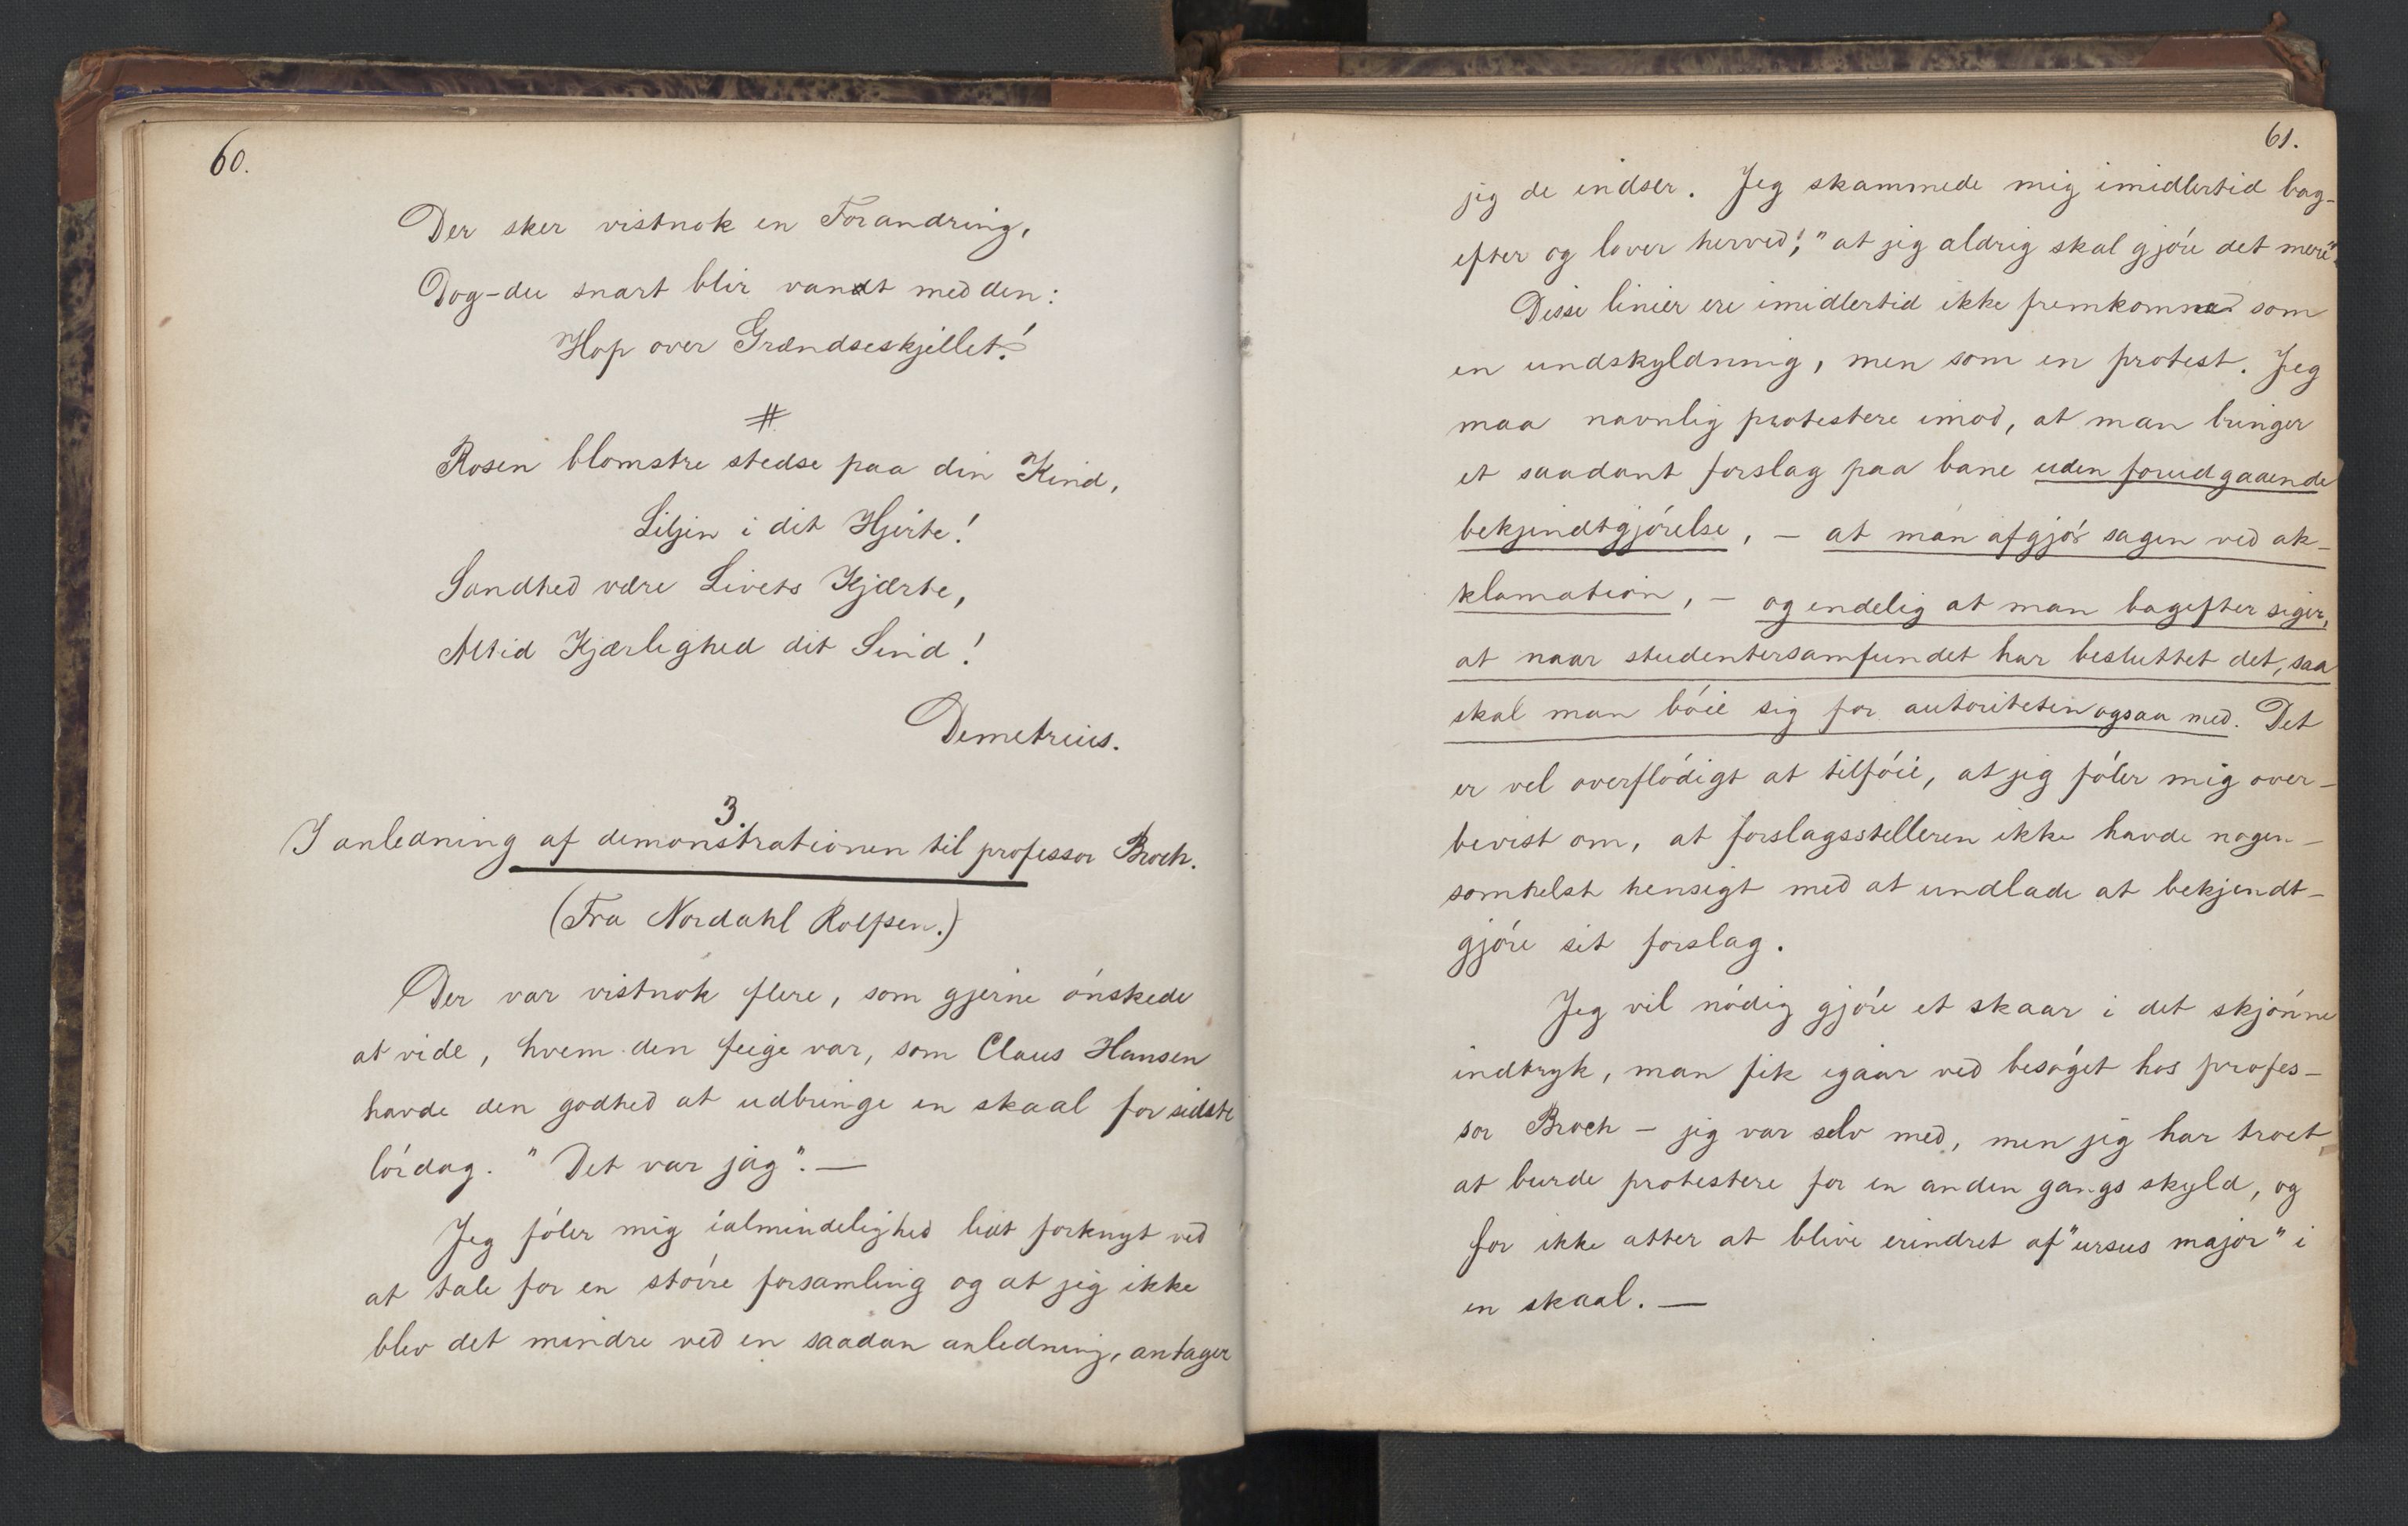 60.
Der sker vistnok en Forandring,
Dog-du snart blir vandt med den:
Hop over Grændseskjellet!
#
Rosen blomstre stedse paa din Kind,
Liljen i dit Hjerte!
Sandhed være Livets Kjærte,
Altid Kjærlighed dit Sind!
Demetrius.
3.
I anledning af demonstrationen til professor Broch.
(Fra Nordahl Rolfsen.)
Der var vistnok flere, som gjerne ónskede
at vide, hvem den feige var, som Claus Hansen
havde den godhed at udbringe en skaal for sidste
lórdag. "Det var jag". —
Jeg fóler mig ialmindelighed lidt forknyt ved
at tale for en stórre forsamling og at jeg ikke
blev det mindre ved en saadan anledning, antager
61.
jeg de indser. Jeg skammede mig imidlertid bag-
efter og lover herved, "at jeg aldrig skal gjóre det mere".
Disse linier ere imidlertid ikke fremkomne som
en undskyldning, men som en protest. Jeg
maa navnlig protestere imod, at man bringer
et saadant forslag paa bane uden forudgaaende
bekjendtgjórelse, — at man afgjór sagen ved ak-
klamation, — og endelig at man bagefter siger,
at naar studentersamfundet har besluttet det, saa
skal man bóie sig for autoriteten ogsaa med. Det
er vel overflódigt at tilfóie, at jeg fóler mig over-
bevist om, at forslagsstilleren ikke havde nogen-
somhelst hensigt med at undlade at bekjendt-
gjóre sit forslag.
Jeg vil nódig gjóre et skaar i det skjónne
indtryk, man fik igaar ved besóget hos profes-
sor Broch — jeg var selv med, men jeg har troet
at burde protestere for en anden gangs skyld, og
for ikke atter at blive erindret af "ursus major" i
en skaal. —